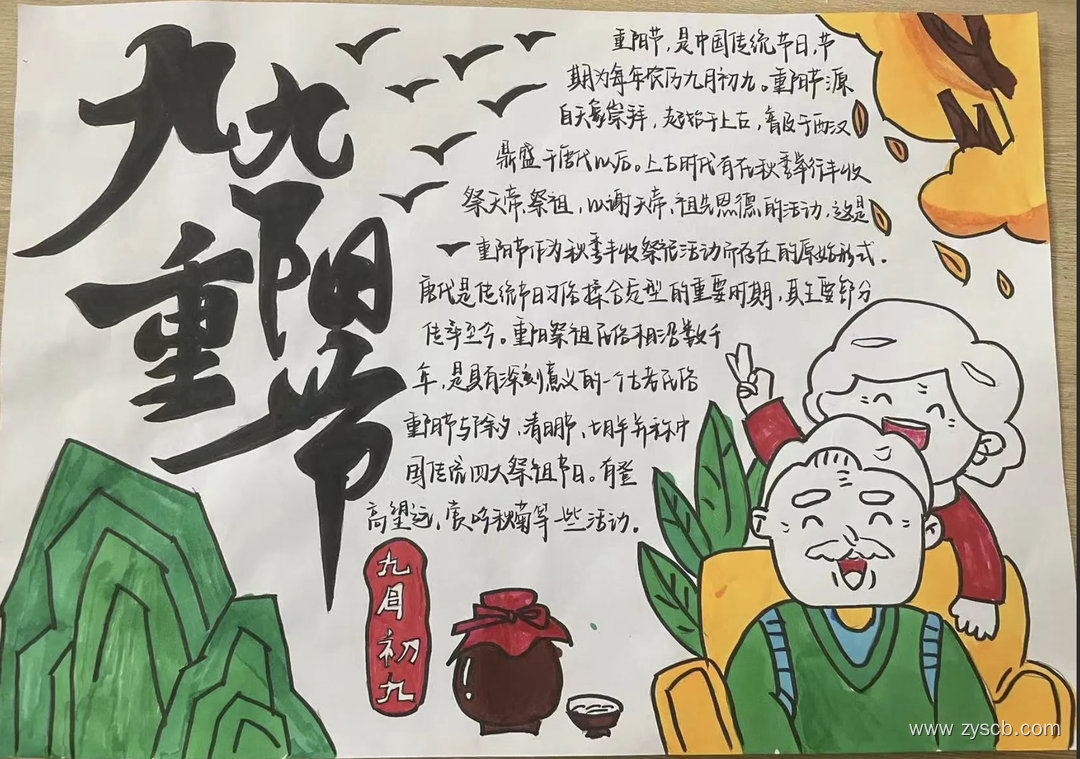 九九
重阳节
重阳节，是中国传统节日，节
期为每年农历九月初九。重阳节源
自天象崇拜，起始于上古，普及于西汉
鼎盛于唐代以后。上古时代有在秋季举行丰收
祭天帝、祭祖，以谢天帝、祖先恩德的活动，这是
重阳节作为秋季丰收祭祀活动而存在的原始形式。
唐代是传统节日习俗揉合定型的重要时期，其主要部分
传承至今。重阳祭祖民俗相沿数千
年，是具有深刻意义的一个古老民俗
重阳节与除夕、清明节、七月半并称中
国传统四大祭祖节日。有登
高望远、赏吟秋菊等一些活动。
九月初九
www.zyscb.com